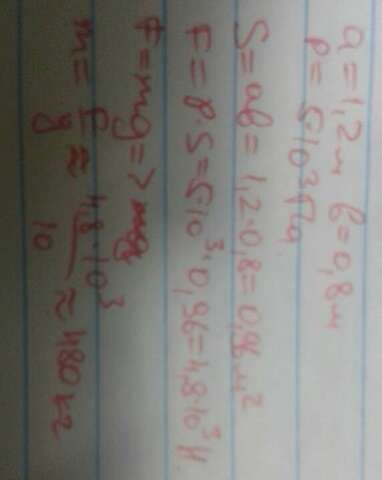 a = 1,2 м b = 0,8 м
p = 5·10³ Па
S = ab = 1,2·0,8 = 0,96 м²
F = pS = 5·10³·0,96 = 4,8·10³ Н.
F = mg =>
m = F/g ≈ 4,8·10³/10 ≈ 480 кг